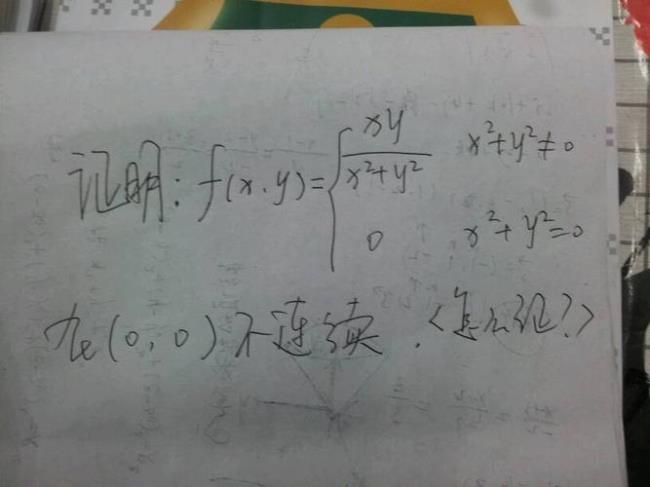 证明: f(x,y)={ xy/(x²+y²) x²+y²≠0
0 x²+y²=0
在(0,0)不连续.<怎么证?>